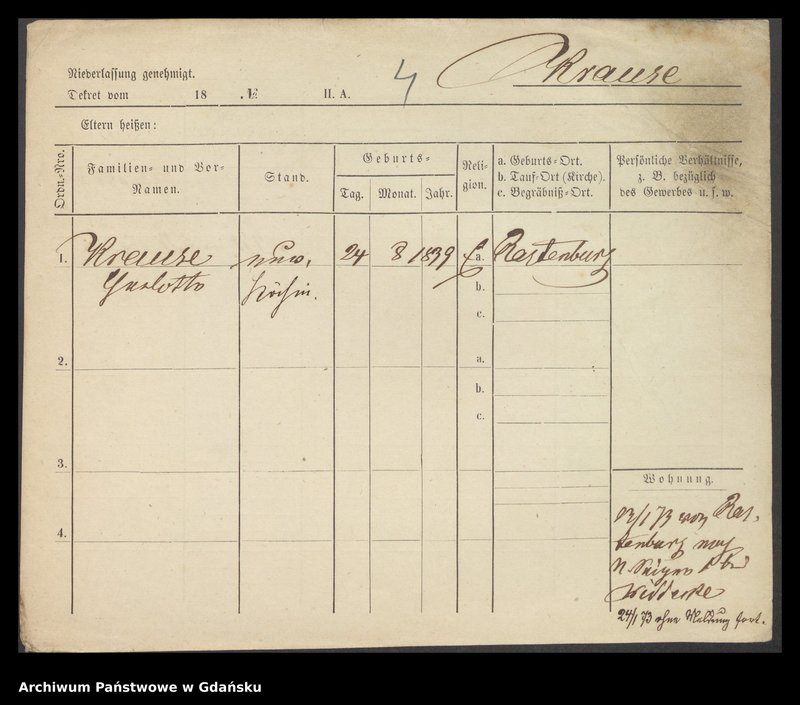 Niederlassung genehmigt.
Dekret vom 18 . № II. A. 4
Krause
Eltern heißen:
Ordn.-Nro.
Familien- und Vor-
Namen.
Stand.
Geburts-
Tag. Monat. Jahr.
Reli-
gion.
a. Geburts-Ort.
b. Tauf-Ort (Kirche).
c. Begräbniß-Ort.
Persönliche Verhältnisse,
z. B. bezüglich
des Gewerbes u. s. w.
1. Krause unv. 24 8 1839 E a. Rastenburg
Charlotte Köchin. b.
c.
2. a.
b.
c.
3.
Wohnung.
4.
13/1 73 von Ras-
tenburg nach
bei
24/1 73 ohne Meldung fort.
Archiwum Państwowe w Gdańsku